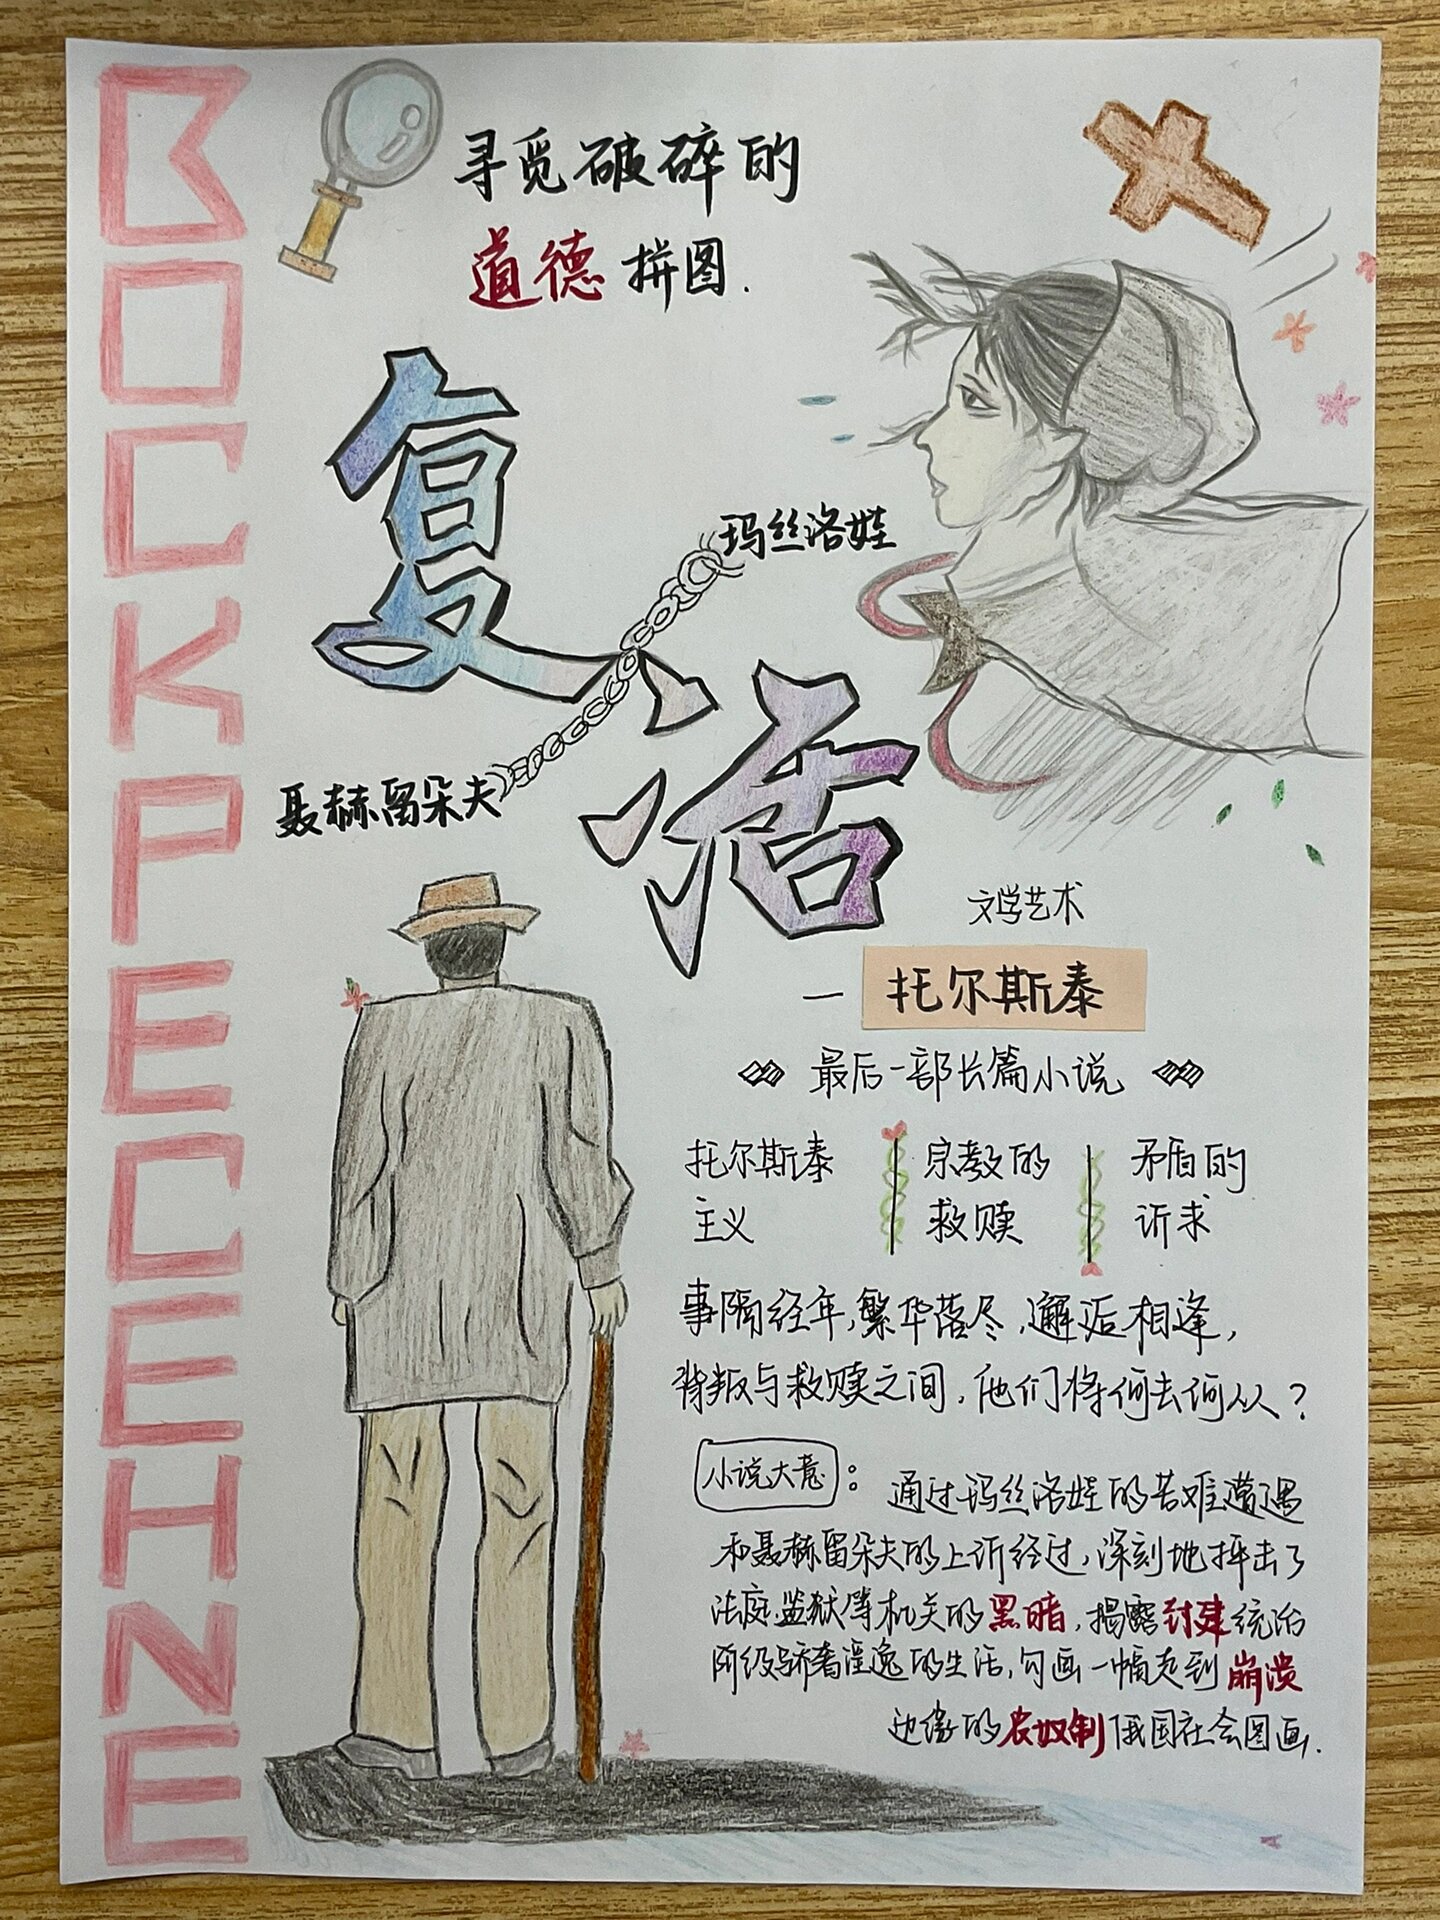 ВОСКРЕСЕНИЕ
寻觅破碎的
道德拼图.
复活
玛丝洛娃
聂赫留朵夫
文学艺术
— 托尔斯泰
最后一部长篇小说
托尔斯泰
主义
宗教的
救赎
矛盾的
诉求
事隔经年,繁华落尽,邂逅相逢,
背叛与救赎之间,他们将何去何从?
小说大意: 通过玛丝洛娃的苦难遭遇
和聂赫留朵夫的上诉经过,深刻地抨击了
法庭.监狱等机关的黑暗,揭露封建统治
阶级骄奢淫逸的生活,勾画一幅走到崩溃
边缘的农奴制俄国社会图画.